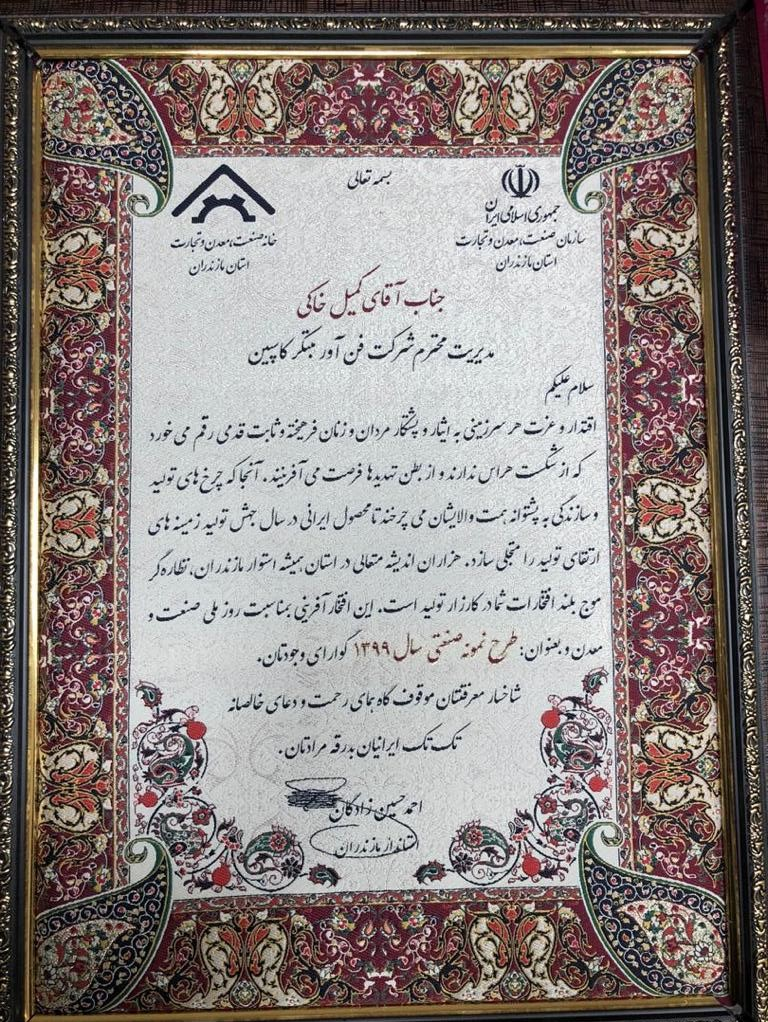 بسمه تعالی
جمهوری اسلامی ایران
سازمان صنعت، معدن و تجارت
استان مازندران
خانه صنعت، معدن و تجارت
استان مازندران
جناب آقای کمیل خاکی
مدیریت محترم شرکت فن آور مبتکر کاسپین
سلام علیکم
اقتدار و عزت هر سرزمینی به ایثار و پشتکار مردان و زنان فرهیخته و ثابت قدمی رقم می خورد
که از شکست هراس ندارند و از بطن تهدیدها فرصت می آفرینند. آنجا که چرخ های تولید
و سازندگی به پشتوانه همت والایشان می چرخند تا محصول ایرانی در سال جهش تولید زمینه های
ارتقای تولید را متجلی سازد. هزاران اندیشه متعالی در استان همیشه استوار مازندران، نظاره گر
موج بلند افتخارات شما در کارزار تولید است. این افتخار آفرینی بمناسبت روز ملی صنعت و
معدن و بعنوان: طرح نمونه صنعتی سال ۱۳۹۹ گوارای وجودتان.
شاخسار معرفتتان موقوف گاه همای رحمت و دعای خالصانه
تک تک ایرانیان بدرقه مرادتان.
احمد حسین زادگان
استاندار مازندران